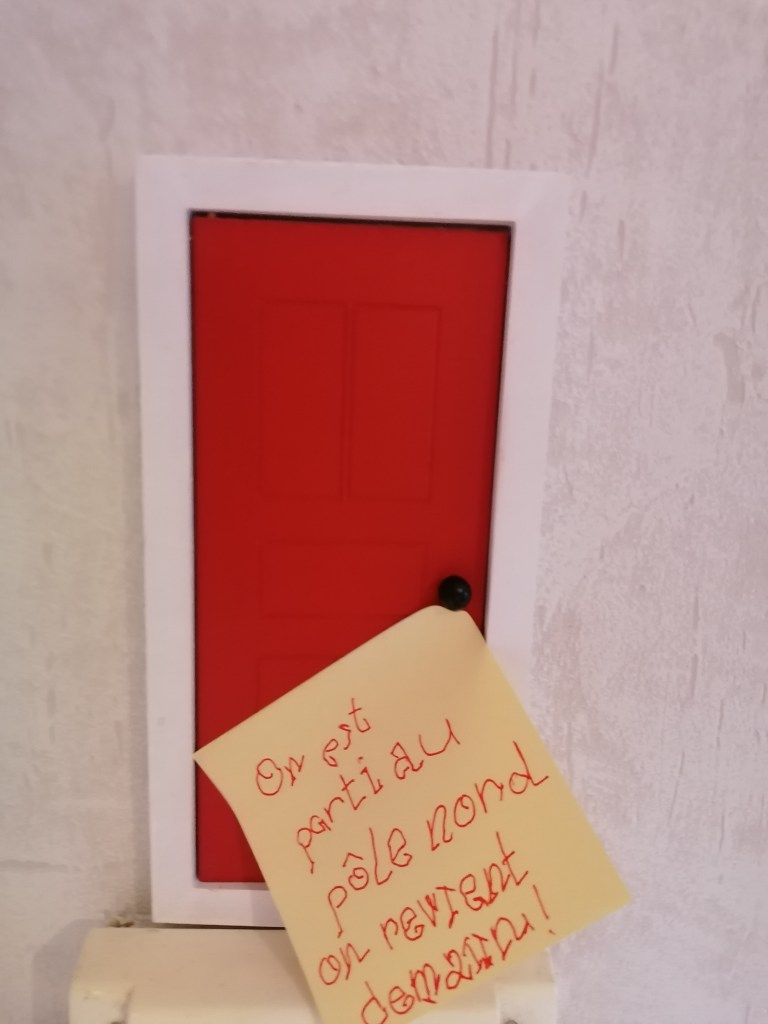 On est
parti au
pôle nord
on revient
demain !